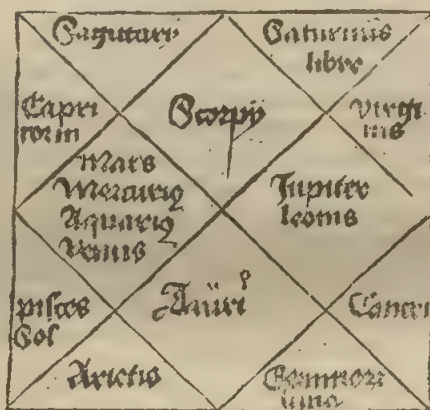 Sagittarii
Saturnus
libre
Capri
corni
Scorpij
Virgi
nis
Mars
Mercuriꝰ
Aquariꝰ
Venus
Jupiter
leonis
pisces
Sol
Tauri
Cancri
Arietis
Geminorꝝ
luna